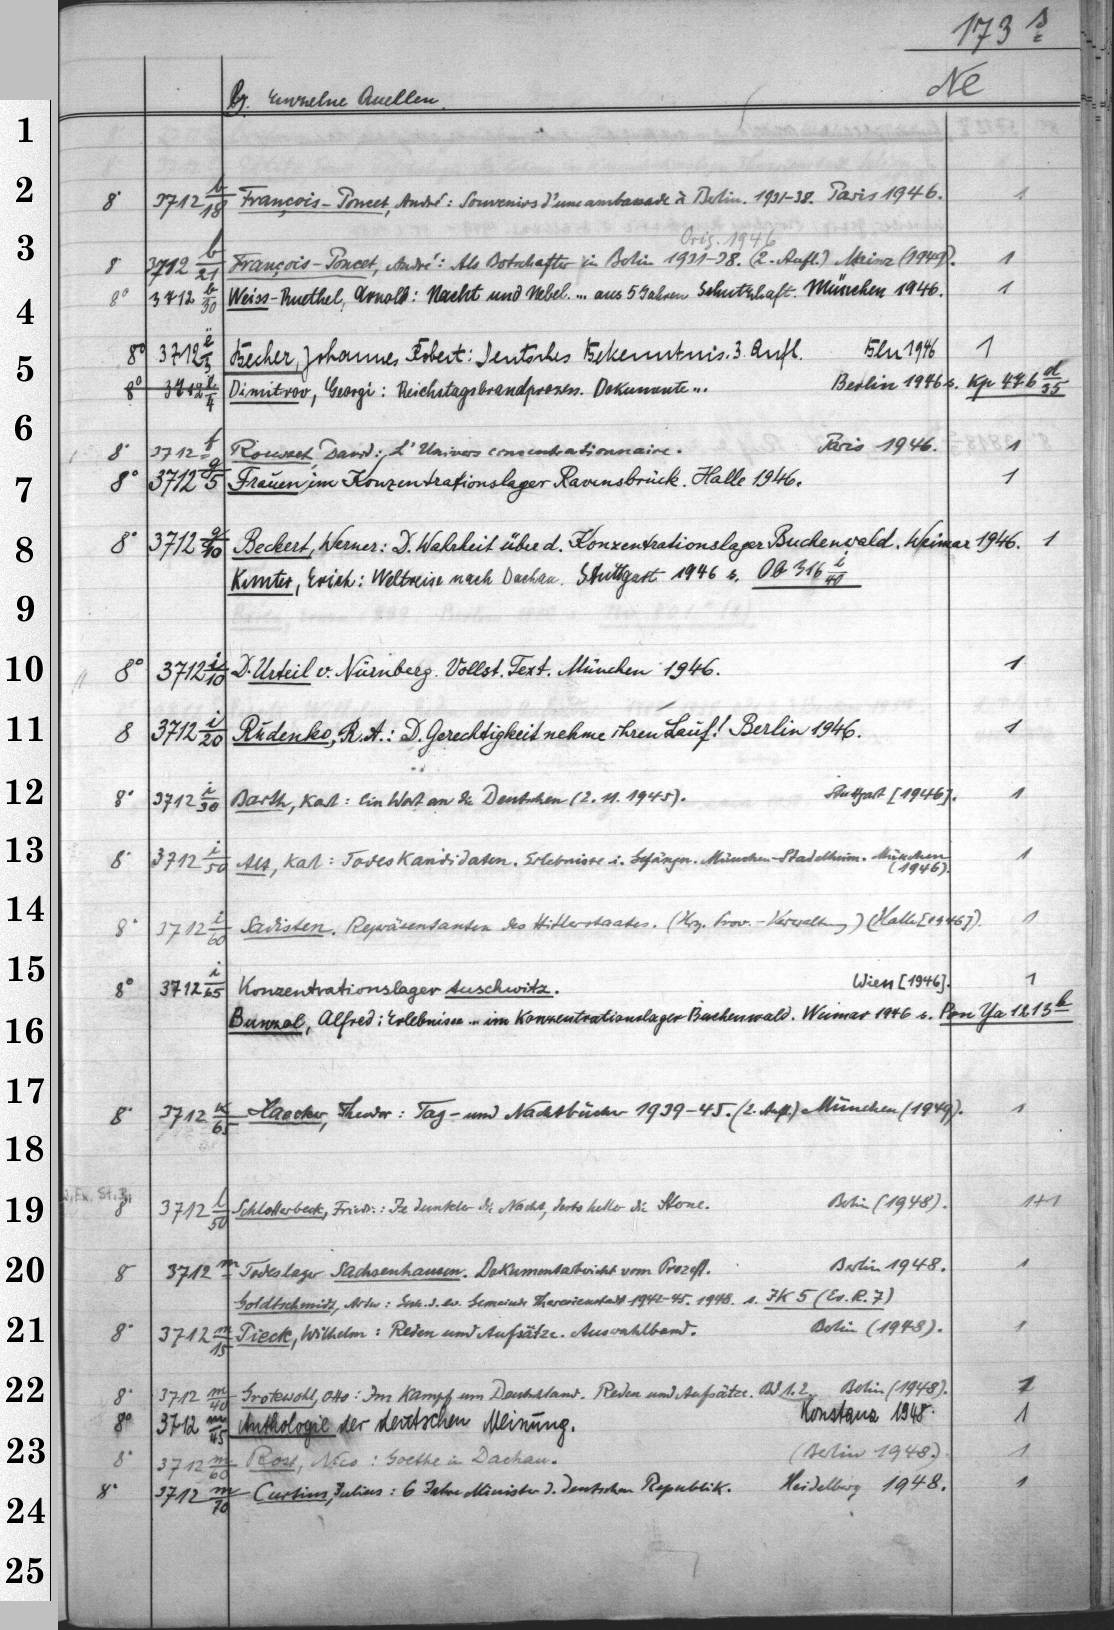 173 s
Ne
b. Einzelne Quellen.
1
2
8° 3712 b/18 François-Poncet, André: Souvenirs d'une ambassade à Berlin. 1931-38. Paris 1946. 1
Orig. 1946
3
8° 3712 b/21 François-Poncet, André: Als Botschafter in Berlin 1931-38. (2. Aufl.) Mainz (1949). 1
8° 3712 b/30 Weiss-Ruethel, Arnold: Nacht und Nebel. ... aus 5 Jahren Schutzhaft. München 1946. 1
4
8° 3712 Becher, Johannes Robert: Deutsches Bekenntnis. 3. Aufl. Bln 1946 1
5
8° 3712 /4 Dimitrov, Georgi: Reichstagsbrandprozess. Dokumente... Berlin 1946 s. Kp 476 d/35
6
8° 3712 f Rousset, David: L'Univers concentrationnaire. Paris 1946. 1
7
8° 3712 g/5 Frauen im Konzentrationslager Ravensbrück. Halle 1946. 1
8
8° 3712 g/10 Beckert, Werner: D. Wahrheit über d. Konzentrationslager Buchenwald. Weimar 1946. 1
Kunter, Erich: Weltreise nach Dachau. Stuttgart 1946 s. Ob 316 i/40
9
10
8° 3712 i/10 D. Urteil v. Nürnberg. Vollst. Text. München 1946. 1
11
8 3712 i/20 Rudenko, R. A.: D. Gerechtigkeit nehme ihren Lauf! Berlin 1946. 1
12
8° 3712 i/30 Barth, Karl: Ein Wort an die Deutschen (2. 11. 1945). Stuttgart [1946]. 1
13
8° 3712 i/50 Alt, Karl: Todeskandidaten. Erlebnisse i. Gefängn. München-Stadelheim. München (1946). 1
14
8° 3712 i/60 Sadisten. Repräsentanten des Hitlerstaates. (Hrg. Prov.-Verwaltung) (Halle [1946]). 1
15
8° 3712 i/65 Konzentrationslager Auschwitz. Wien [1946]. 1
16
Bunzol, Alfred: Erlebnisse ... im Konzentrationslager Buchenwald. Weimar 1946 s. Pon Ya 1213 b
17
8° 3712 k/65 Haecker, Theodor: Tag- und Nachtbücher 1939-45. (2. Aufl.) München (1949). 1
18
19
8° 3712 l/50 Schlotterbeck, Friedr.: Je dunkler die Nacht, desto heller die Sterne. Berlin (1948). 1+1
20
8° 3712 m Todeslager Sachsenhausen. Dokumentarbericht vom Prozeß. Berlin 1948. 1
Goldschmidt, Arthur: Gesch. d. ev. Gemeinde Theresienstadt 1942-45. 1948. s. JK 5 (Ev. R. 7)
21
8° 3712 m/15 Pieck, Wilhelm: Reden und Aufsätze. Auswahlband. Berlin (1948). 1
22
8° 3712 m/40 Grotewohl, Otto: Im Kampf um Deutschland. Reden und Aufsätze. Bd 1. 2 Berlin (1948). 1
8° 3712 m/45 Anthologie der deutschen Meinung. Konstanz 1948. 1
23
8° 3712 m/60 Rost, Nico: Goethe in Dachau. (Berlin 1948.) 1
8° 3712 m/70 Curtius, Julius: 6 Jahre Minister d. deutschen Republik. Heidelberg 1948. 1
24
25